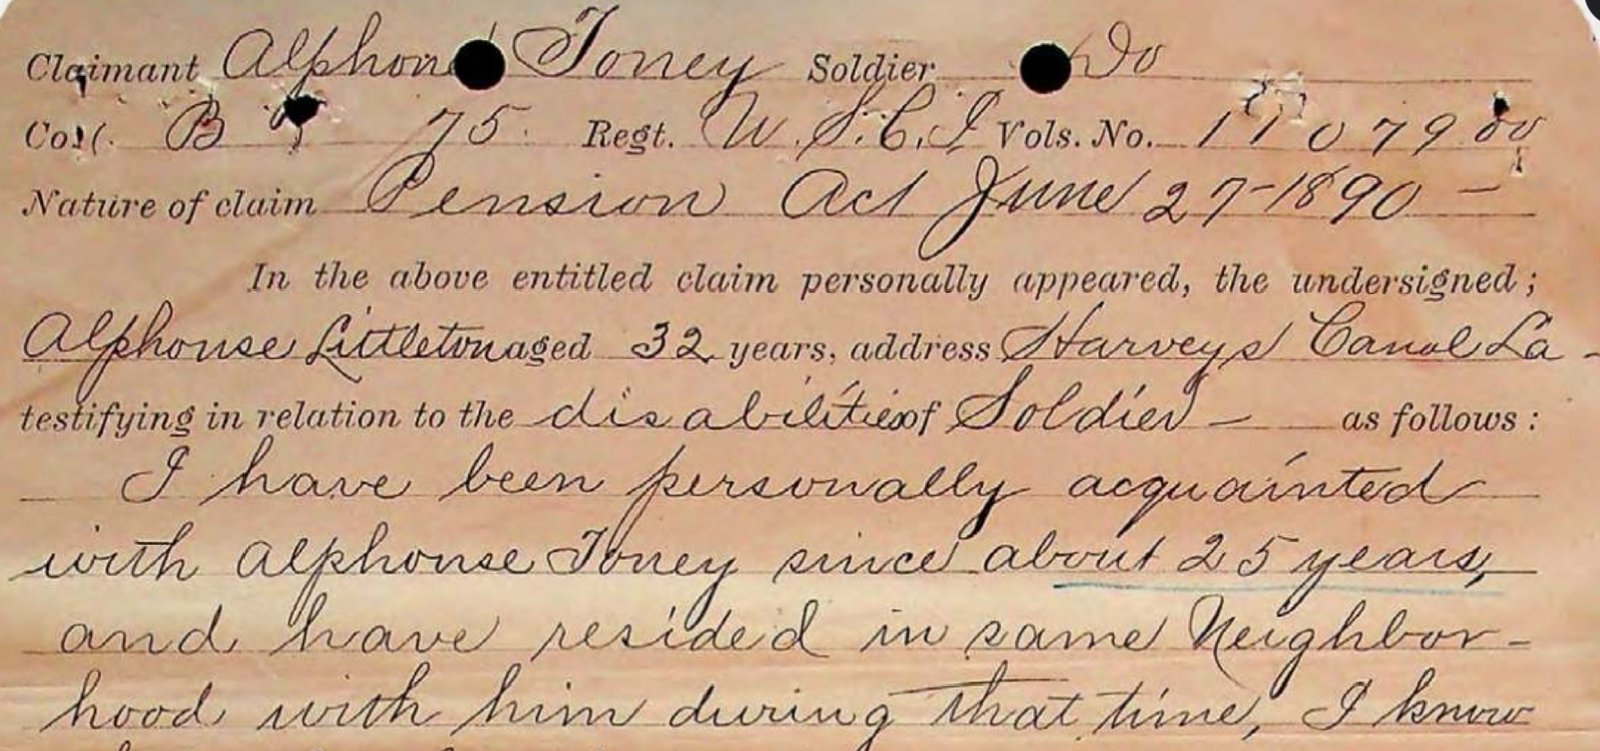 Claimant Alphonse Toney Soldier Do
Co. B 75 Regt. U.S.C.I Vols. No. 11 079 00
Nature of claim Pension Act June 27-1890 —
In the above entitled claim personally appeared, the undersigned;
Alphonse Littleton aged 32 years, address Harveys Canal La -
testifying in relation to the disabilities of Soldier — as follows:
I have been personally acquainted
with Alphonse Toney since about 25 years,
and have resided in same Neighbor-
hood with him during that time, I know